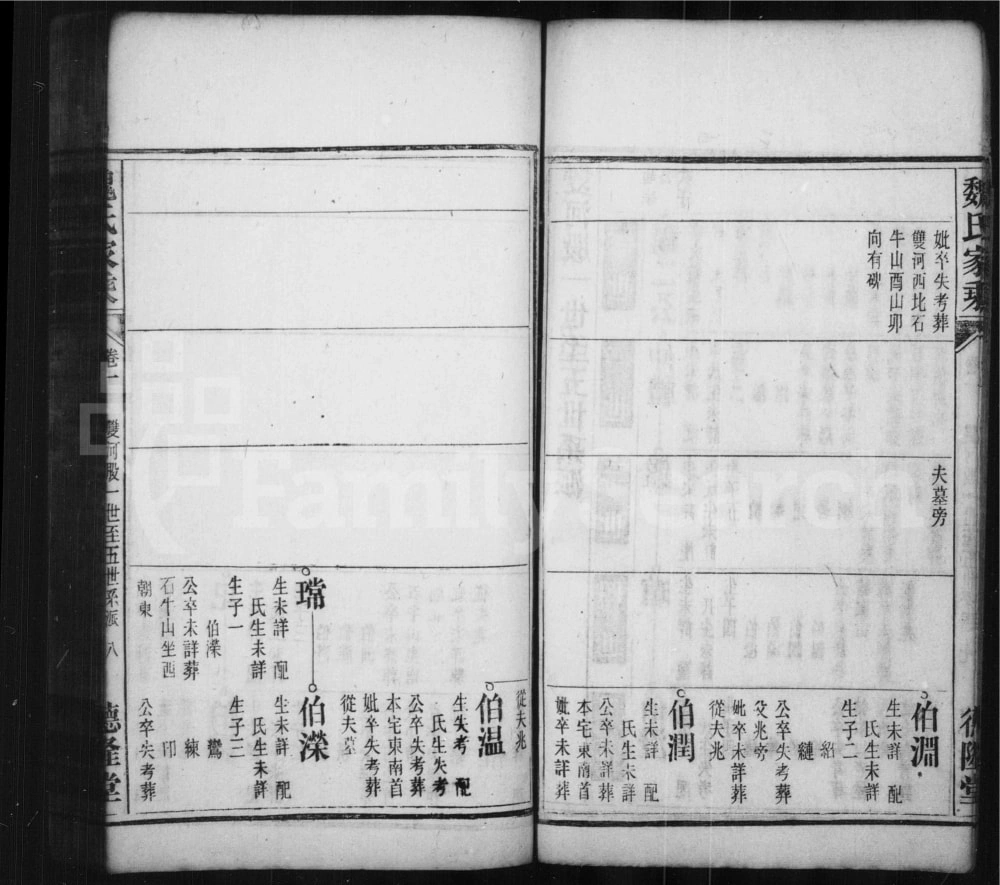 魏氏家乘
德隆堂
妣卒失考葬
雙河西北石
牛山酉山卯
向有碑
夫墓旁
伯淵
生未詳 配
氏生未詳
生子二
紹
縺
公卒失考葬
父兆旁
妣卒未詳葬
從夫兆
伯潤
生未詳 配
氏生未詳
公卒未詳葬
本宅東南首
妣卒未詳葬
從夫兆
伯溫
生失考 配
氏生失考
公卒失考葬
本宅東南首
妣卒失考葬
從夫墓
瑺
生未詳 配
氏生未詳
生子一
伯濚
公卒未詳葬
石牛山坐西
朝東
伯濚
生未詳 配
氏生未詳
生子三
鸞
練
印
公卒失考葬
魏氏家乘
卷一
雙河股一世至五世系派
八
德隆堂
FamilySearch